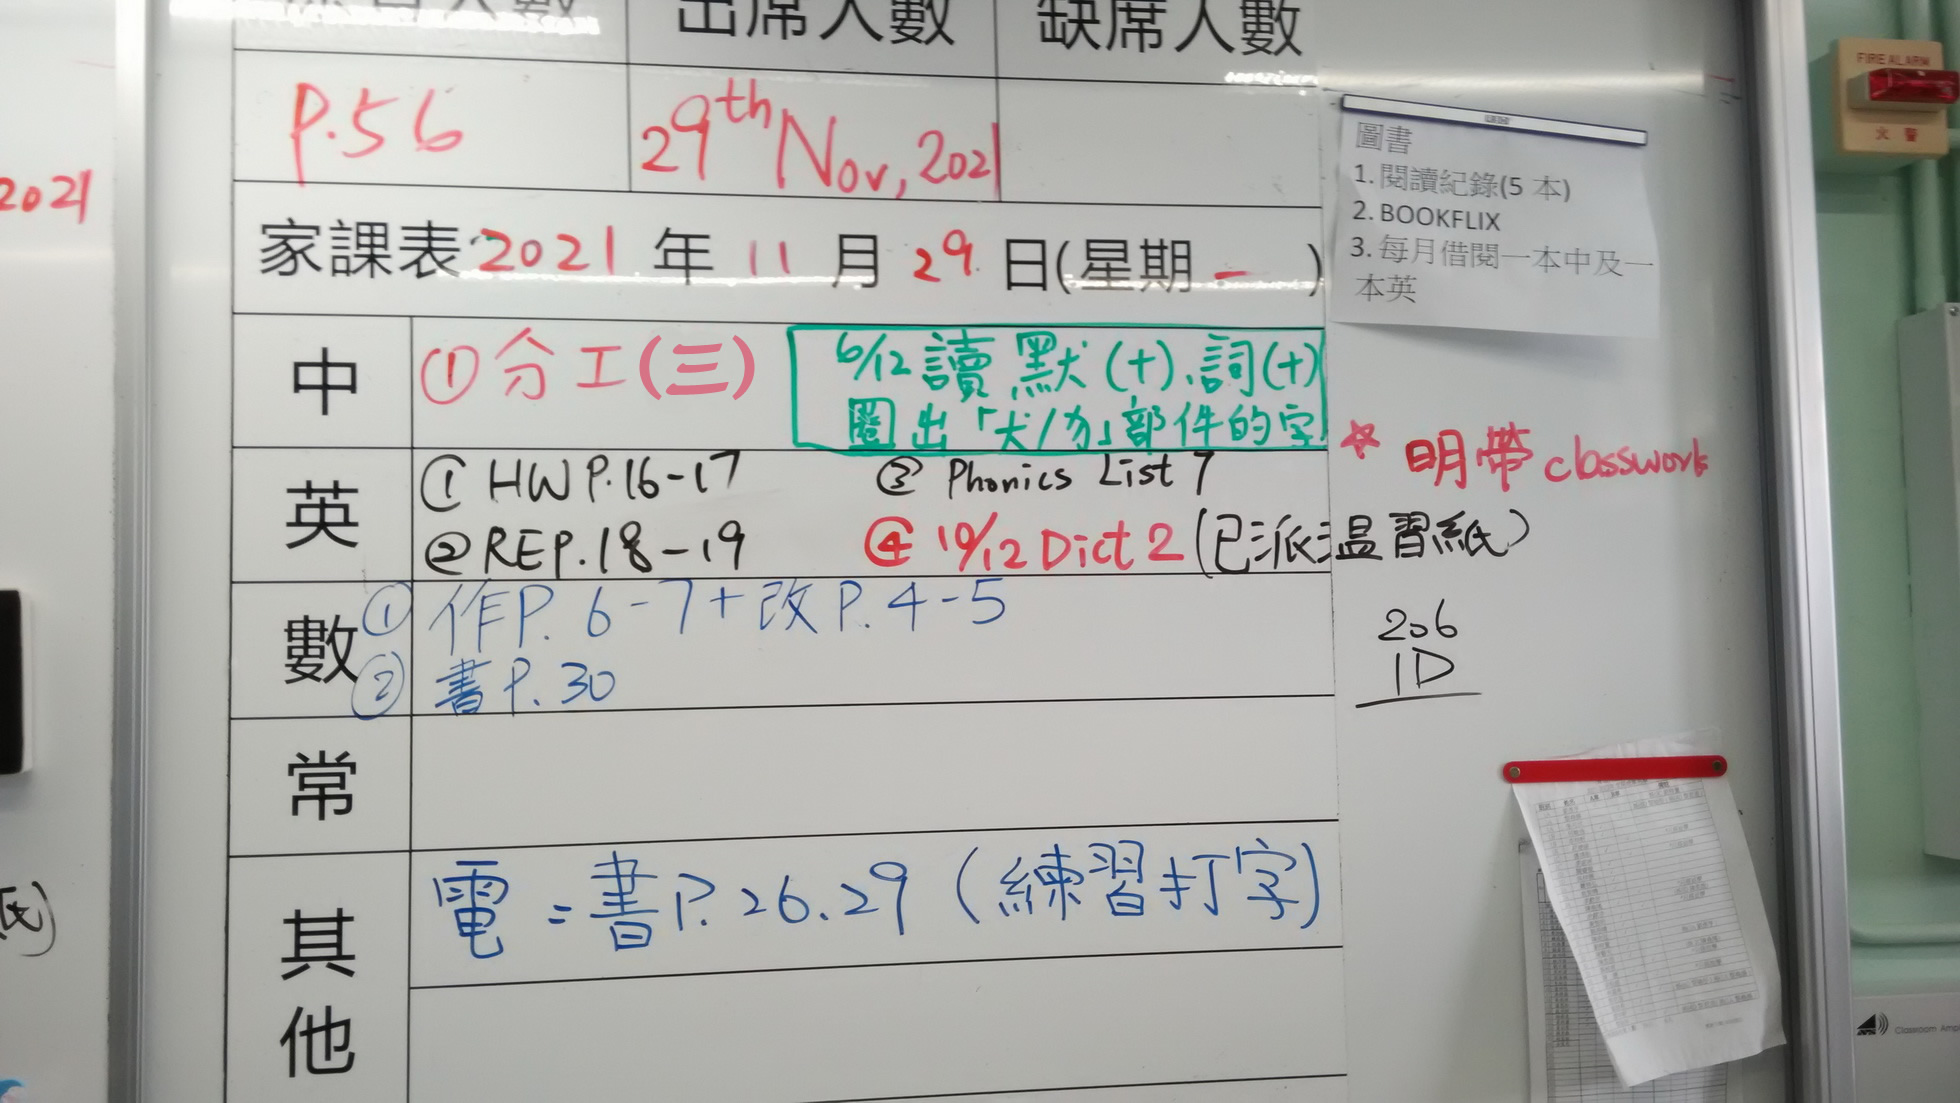 出席人數
缺席人數
P.56
29th Nov, 2021
2021
家課表 2021 年 11 月 29 日(星期 一 )
中
① 分工(三)
6/12 讀默(十)、詞(十)
圈出「犬/力」部件的字
英
① HW P.16-17
③ Phonics List 7
② RE P.18-19
④ 10/12 Dict 2 (已派温習紙)
數
① 作P. 6-7+改P. 4-5
② 書P. 30
常
其他
電=書P. 26.29 (練習打字)
圖書
1. 閱讀紀錄(5 本)
2. BOOKFLIX
3. 每月借閱一本中及一
本英
☆ 明帶 classwork
206
1D
FIRE ALARM
火 警
紙)